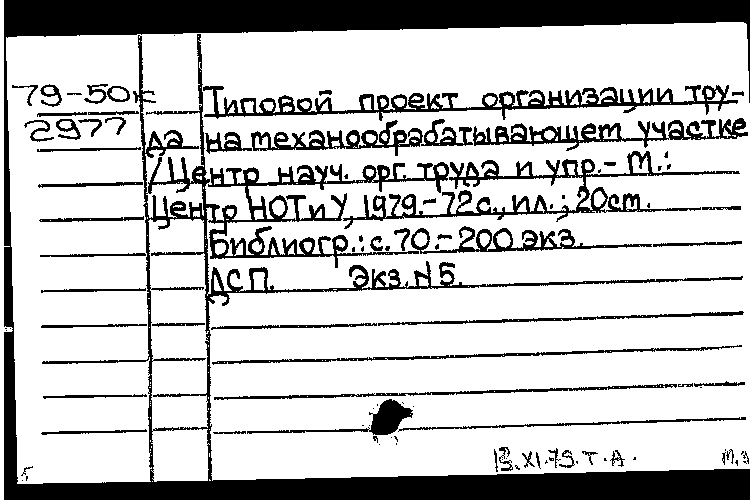 79-50к
2977
Типовой проект организации тру-
да на механообрабатывающем участке
/Центр науч. орг. труда и упр.- М.:
Центр НОТ и У, 1979.- 72с., ил.; 20см.
Библиогр.: с. 70.- 200 экз.
ДСП. Экз. N 5.
13.XI.79. Т.А.